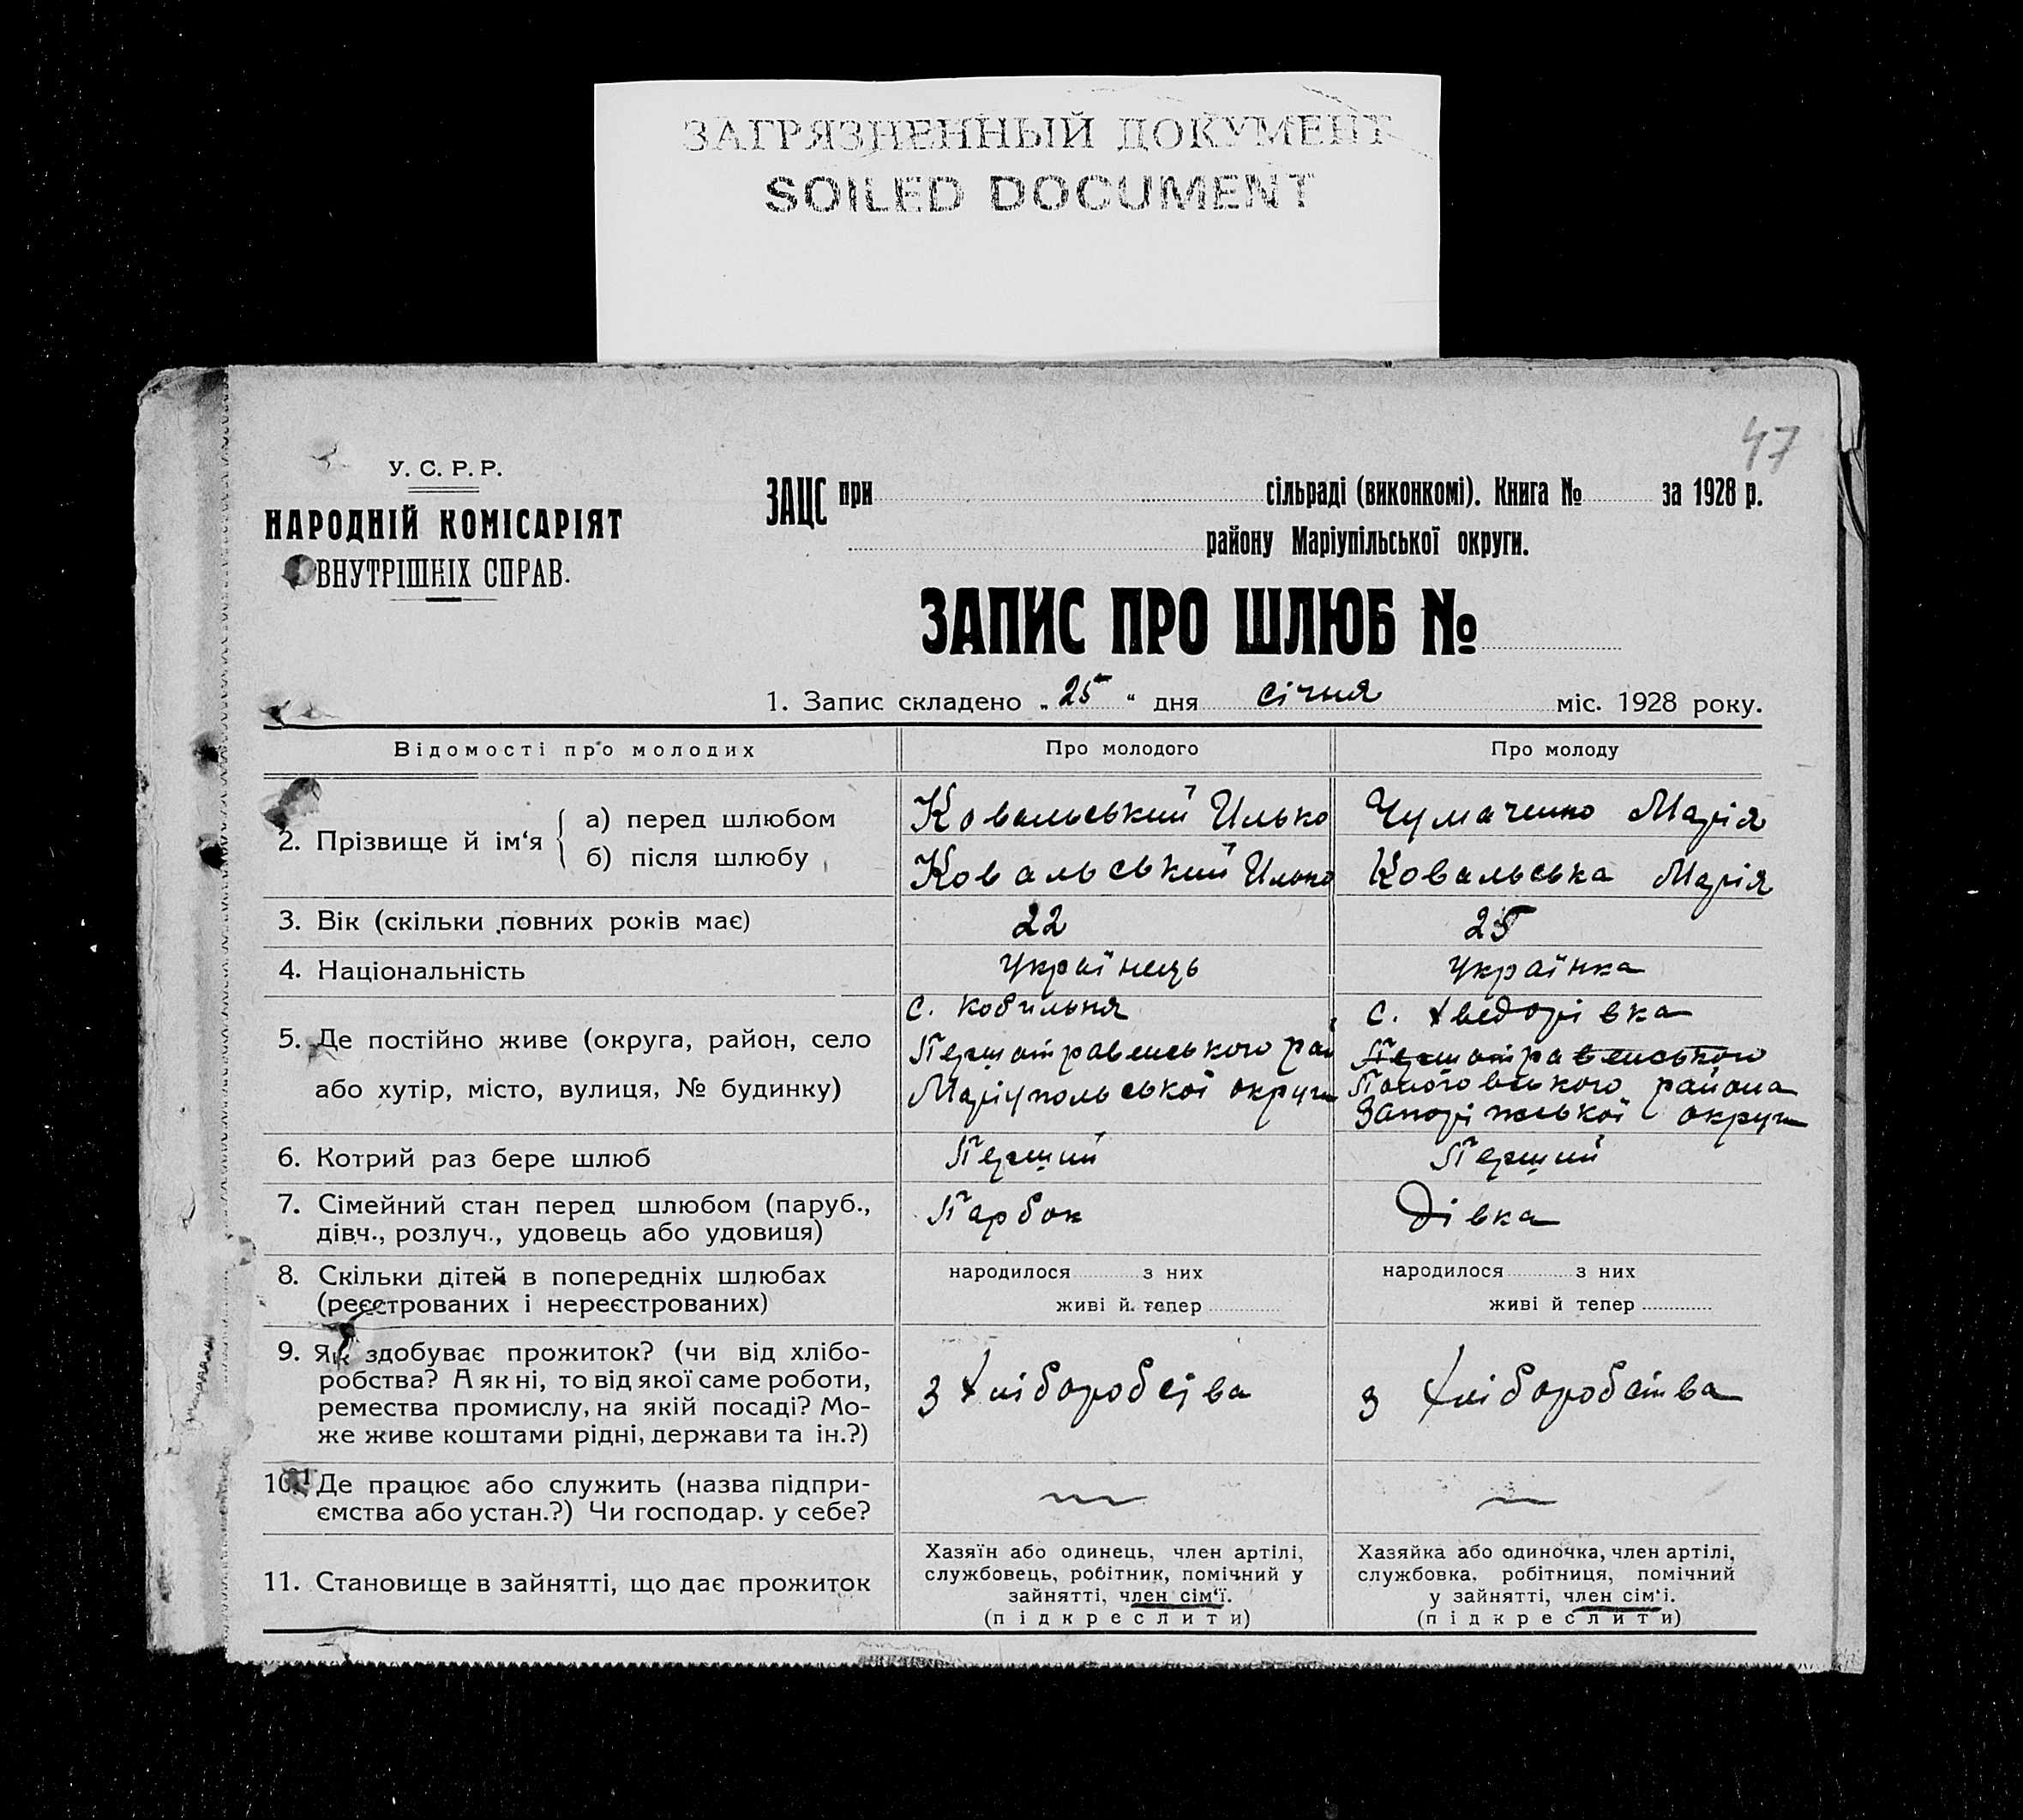 ЗАГРЯЗНЕННЫЙ ДОКУМЕНТ
SOILED DOCUMENT
47
У. С. Р. Р.
НАРОДНІЙ КОМІСАРІЯТ
ВНУТРІШНІХ СПРАВ.
ЗАЦС при сільраді (виконкомі). Книга № за 1928 р.
району Маріупільської округи.
ЗАПИС ПРО ШЛЮБ №
1. Запис складено „25“ дня січня міс. 1928 року.
Відомості про молодих Про молодого Про молоду
2. Прізвище й ім‘я
а) перед шлюбом Ковальський Илько Чумаченко Марія
б) після шлюбу Ковальський Илько Ковальська Марія
3. Вік (скільки повних років має) 22 25
4. Національність Українець Українка
5. Де постійно живе (округа, район, село
або хутір, місто, вулиця, № будинку)
с. Кобильня
Першотравенського рай
Маріупольської округи
с. Хведорівка
Першотравенського
Пологовського района
Запоріжської округи
6. Котрий раз бере шлюб Перший Перший
7. Сімейний стан перед шлюбом (паруб.,
дівч., розлуч., удовець або удовиця)
Парбок Дівка
8. Скільки дітей в попередніх шлюбах
(реєстрованих і нереєстрованих)
народилося з них
живі й тепер
народилося з них
живі й тепер
9. Як здобуває прожиток? (чи від хлібо-
робства? А як ні, то від якої саме роботи,
ремества промислу, на якій посаді? Мо-
же живе коштами рідні, держави та ін.?)
З хліборобства
З хліборобства
10. Де працює або служить (назва підпри-
ємства або устан.?) Чи господар. у себе?
11. Становище в зайнятті, що дає прожиток
Хазяїн або одинець, член артілі,
службовець, робітник, помічний у
зайнятті, член сім‘ї.
(підкреслити)
Хазяйка або одиночка, член артілі,
службовка, робітниця, помічний
у зайнятті, член сім‘ї.
(підкреслити)